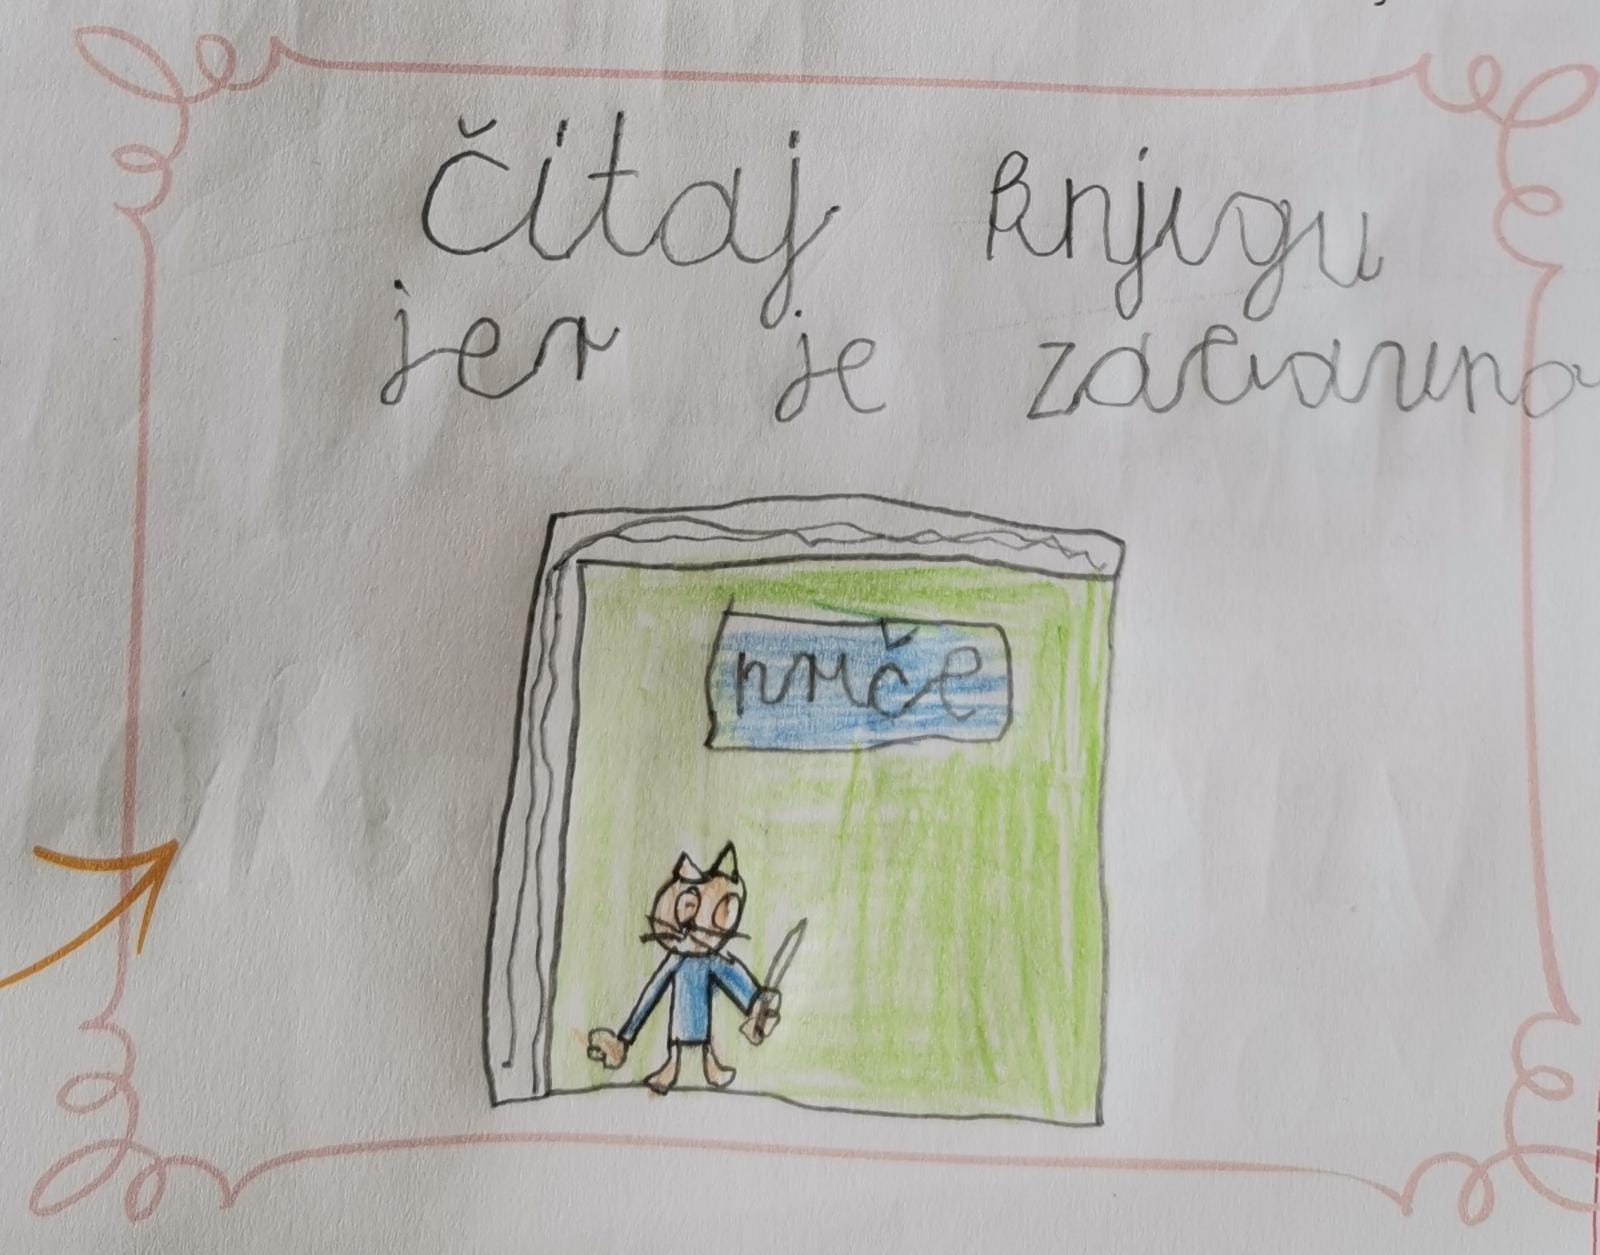 čitaj knjigu
jer je zabavna
priče